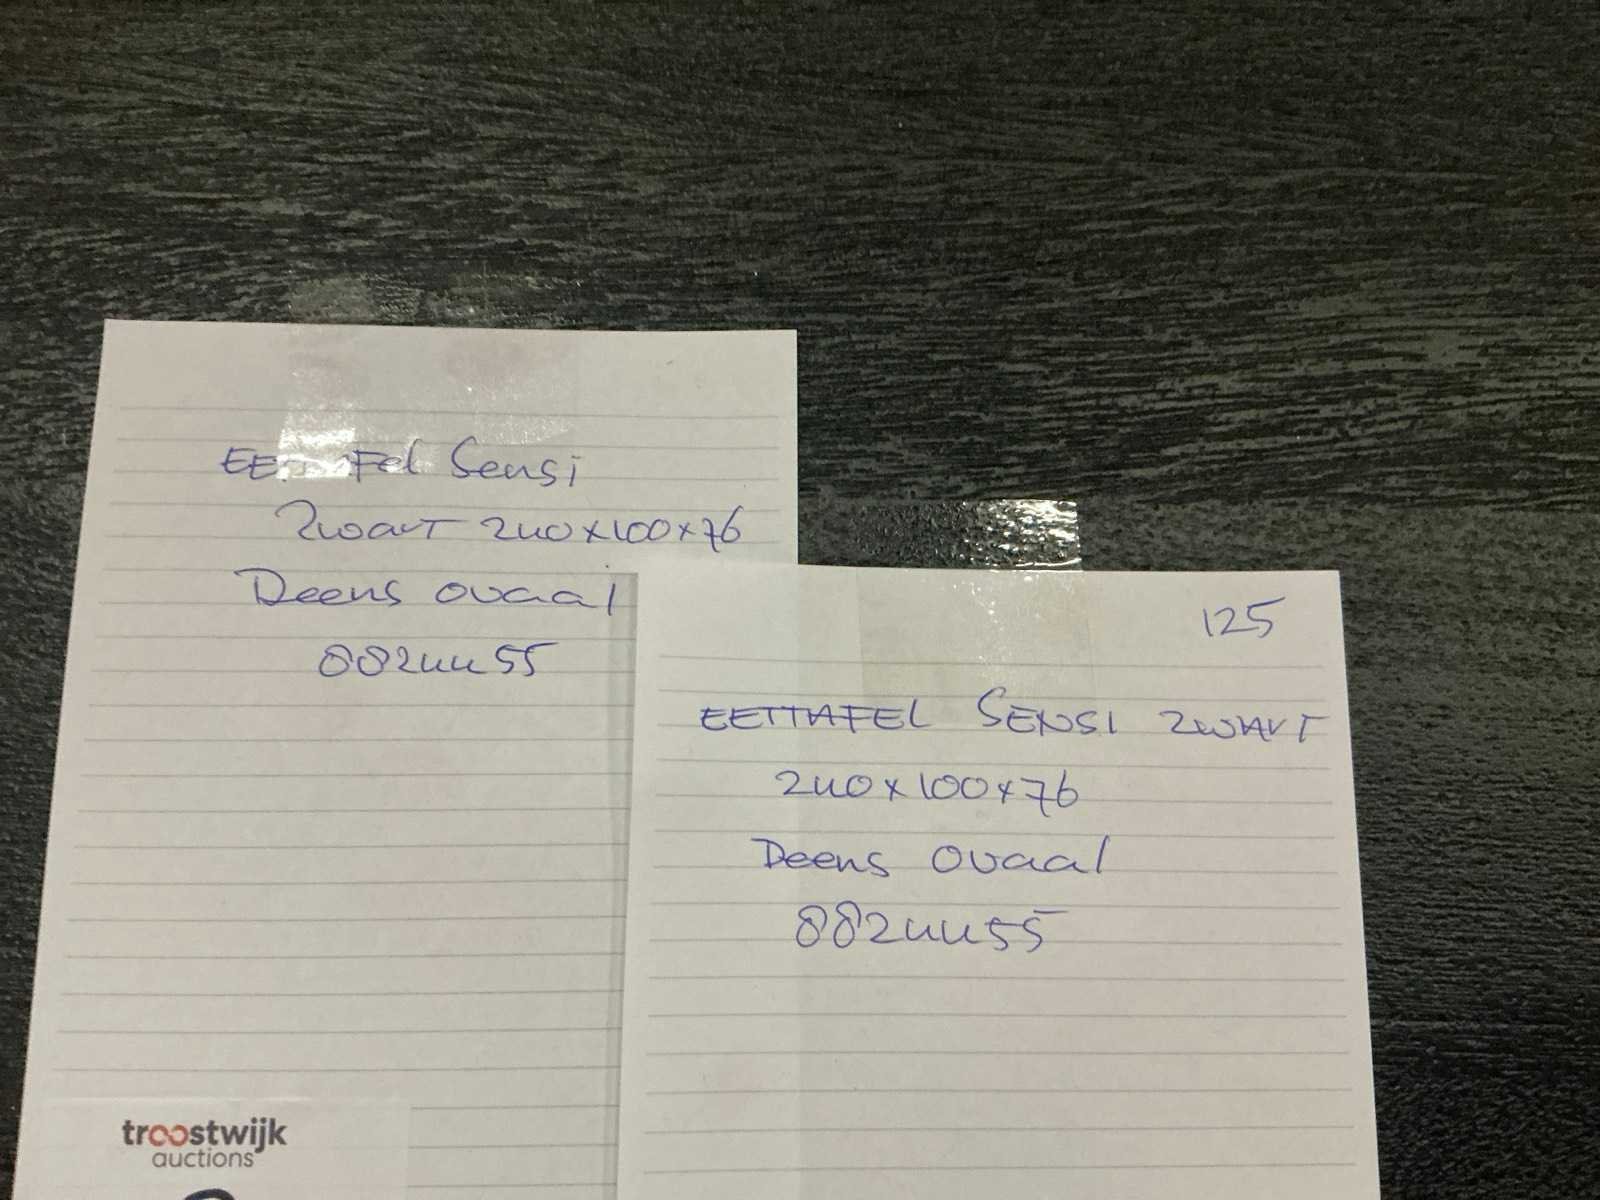 EETTAFEL Sensi
ZwarT 240x100x76
Deens ovaal
8824455
troostwijk
auctions
125
EETTAFEL SENSI ZWART
240x100x76
Deens Ovaal
8824455